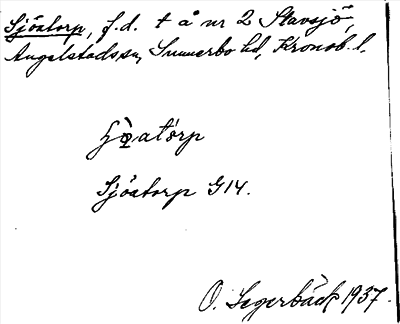 Sjöatorp, f.d. t å nr 2 Stavsjö,
Angelstads sn, Sunnerbo hd, Kronob. l.
Sjöatorp G14.
O. Segerbäck 1937.